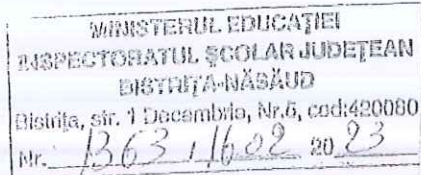 MINISTERUL EDUCAȚIEI
INSPECTORATUL ȘCOLAR JUDEȚEAN
BISTRIȚA-NĂSĂUD
Bistrița, str. 1 Decembrie, Nr.5, cod:420080
Nr. 1363, 16 02 20 23